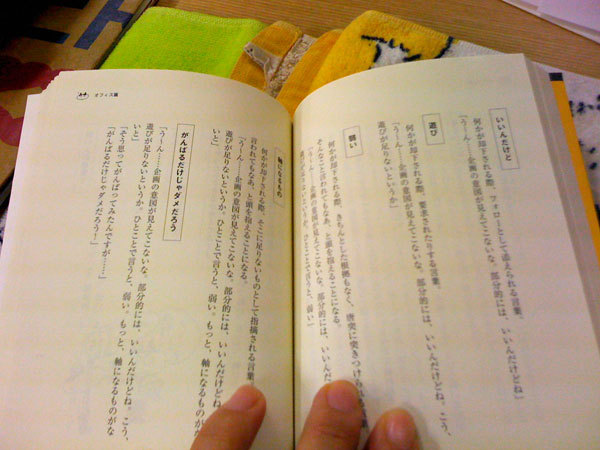 いいんだけど
何かが却下される際、フォローとして添えられる言葉。
「う〜ん……企画の意図が見えてこないな。部分的には、いいんだけどね」
遊び
何かが却下される際、要求されたりする言葉。
「う〜ん……企画の意図が見えてこないな。部分的には、いいんだけどね。こう、
遊びが足りないというか」
弱い
何かが却下される際、きちんとした根拠もなく、唐突に突きつけられ
そんなこと言われてもなあ、と頭を抱えることになる。
「う〜ん……企画の意図が見えてこないな。部分的には、いいんだ
りないというか。ひとことで言うと、弱い」
軸になるもの
何かが却下される際、そこに足りないものとして指摘される言葉。
言われてもなあ、と頭を抱えることになる。
「う〜ん……企画の意図が見えてこないな。部分的には、いいんだけどね
遊びが足りないというか。ひとことで言うと、弱い。もっと、軸
いと」
がんばるだけじゃダメだろう
「う〜ん……企画の意図が見えてこないな。部分的には、いいんだけどね。こう、
遊びが足りないというか。ひとことで言うと、弱い。もっと、軸になるものがな
いと」
「そう思ってがんばってみたんですが……」
「がんばるだけじゃダメだろう！」
オフィス篇